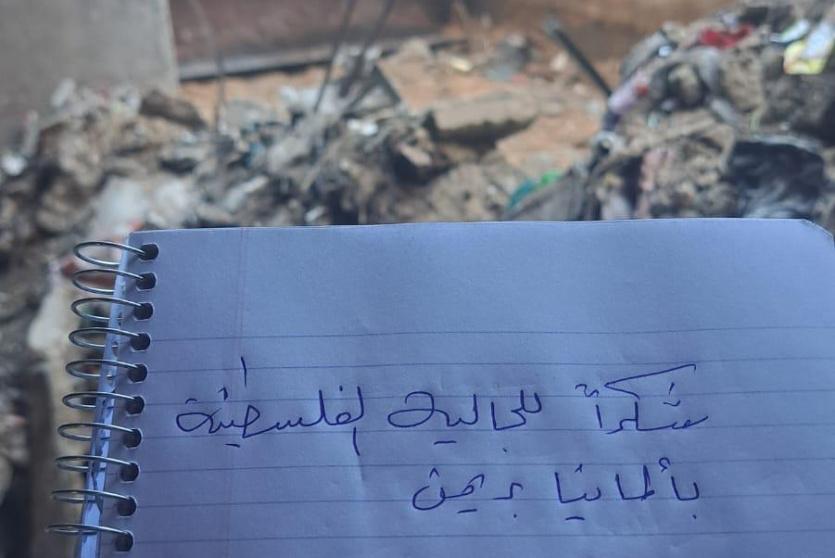 شكراً للجالية الفلسطينية
بألمانيا بريمن